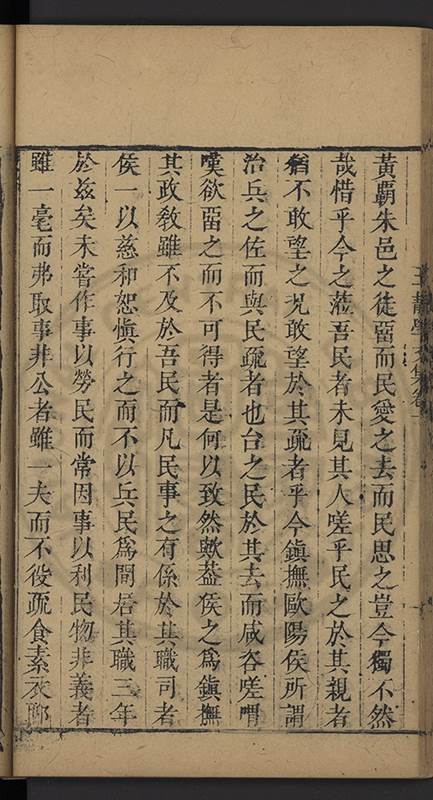 黃霸朱邑之徒畱而民愛之去而民思之豈今獨不然
哉惜乎今之蒞吾民者未見其人嗟乎民之於其親者
猶不敢望之况敢望於其疏者乎今鎭撫歐陽侯所謂
治兵之佐而與民疏者也台之民於其去而咸咨嗟喟
嘆欲畱之而不可得者是何以致然歟葢侯之爲鎭撫
其政敎雖不及於吾民而凡民事之有係於其職司者
侯一以慈和恕愼行之而不以兵民爲閒居其職三年
於兹矣未嘗作事以勞民而常因事以利民物非義者
雖一毫而弗取事非公者雖一夫而不役疏食素衣